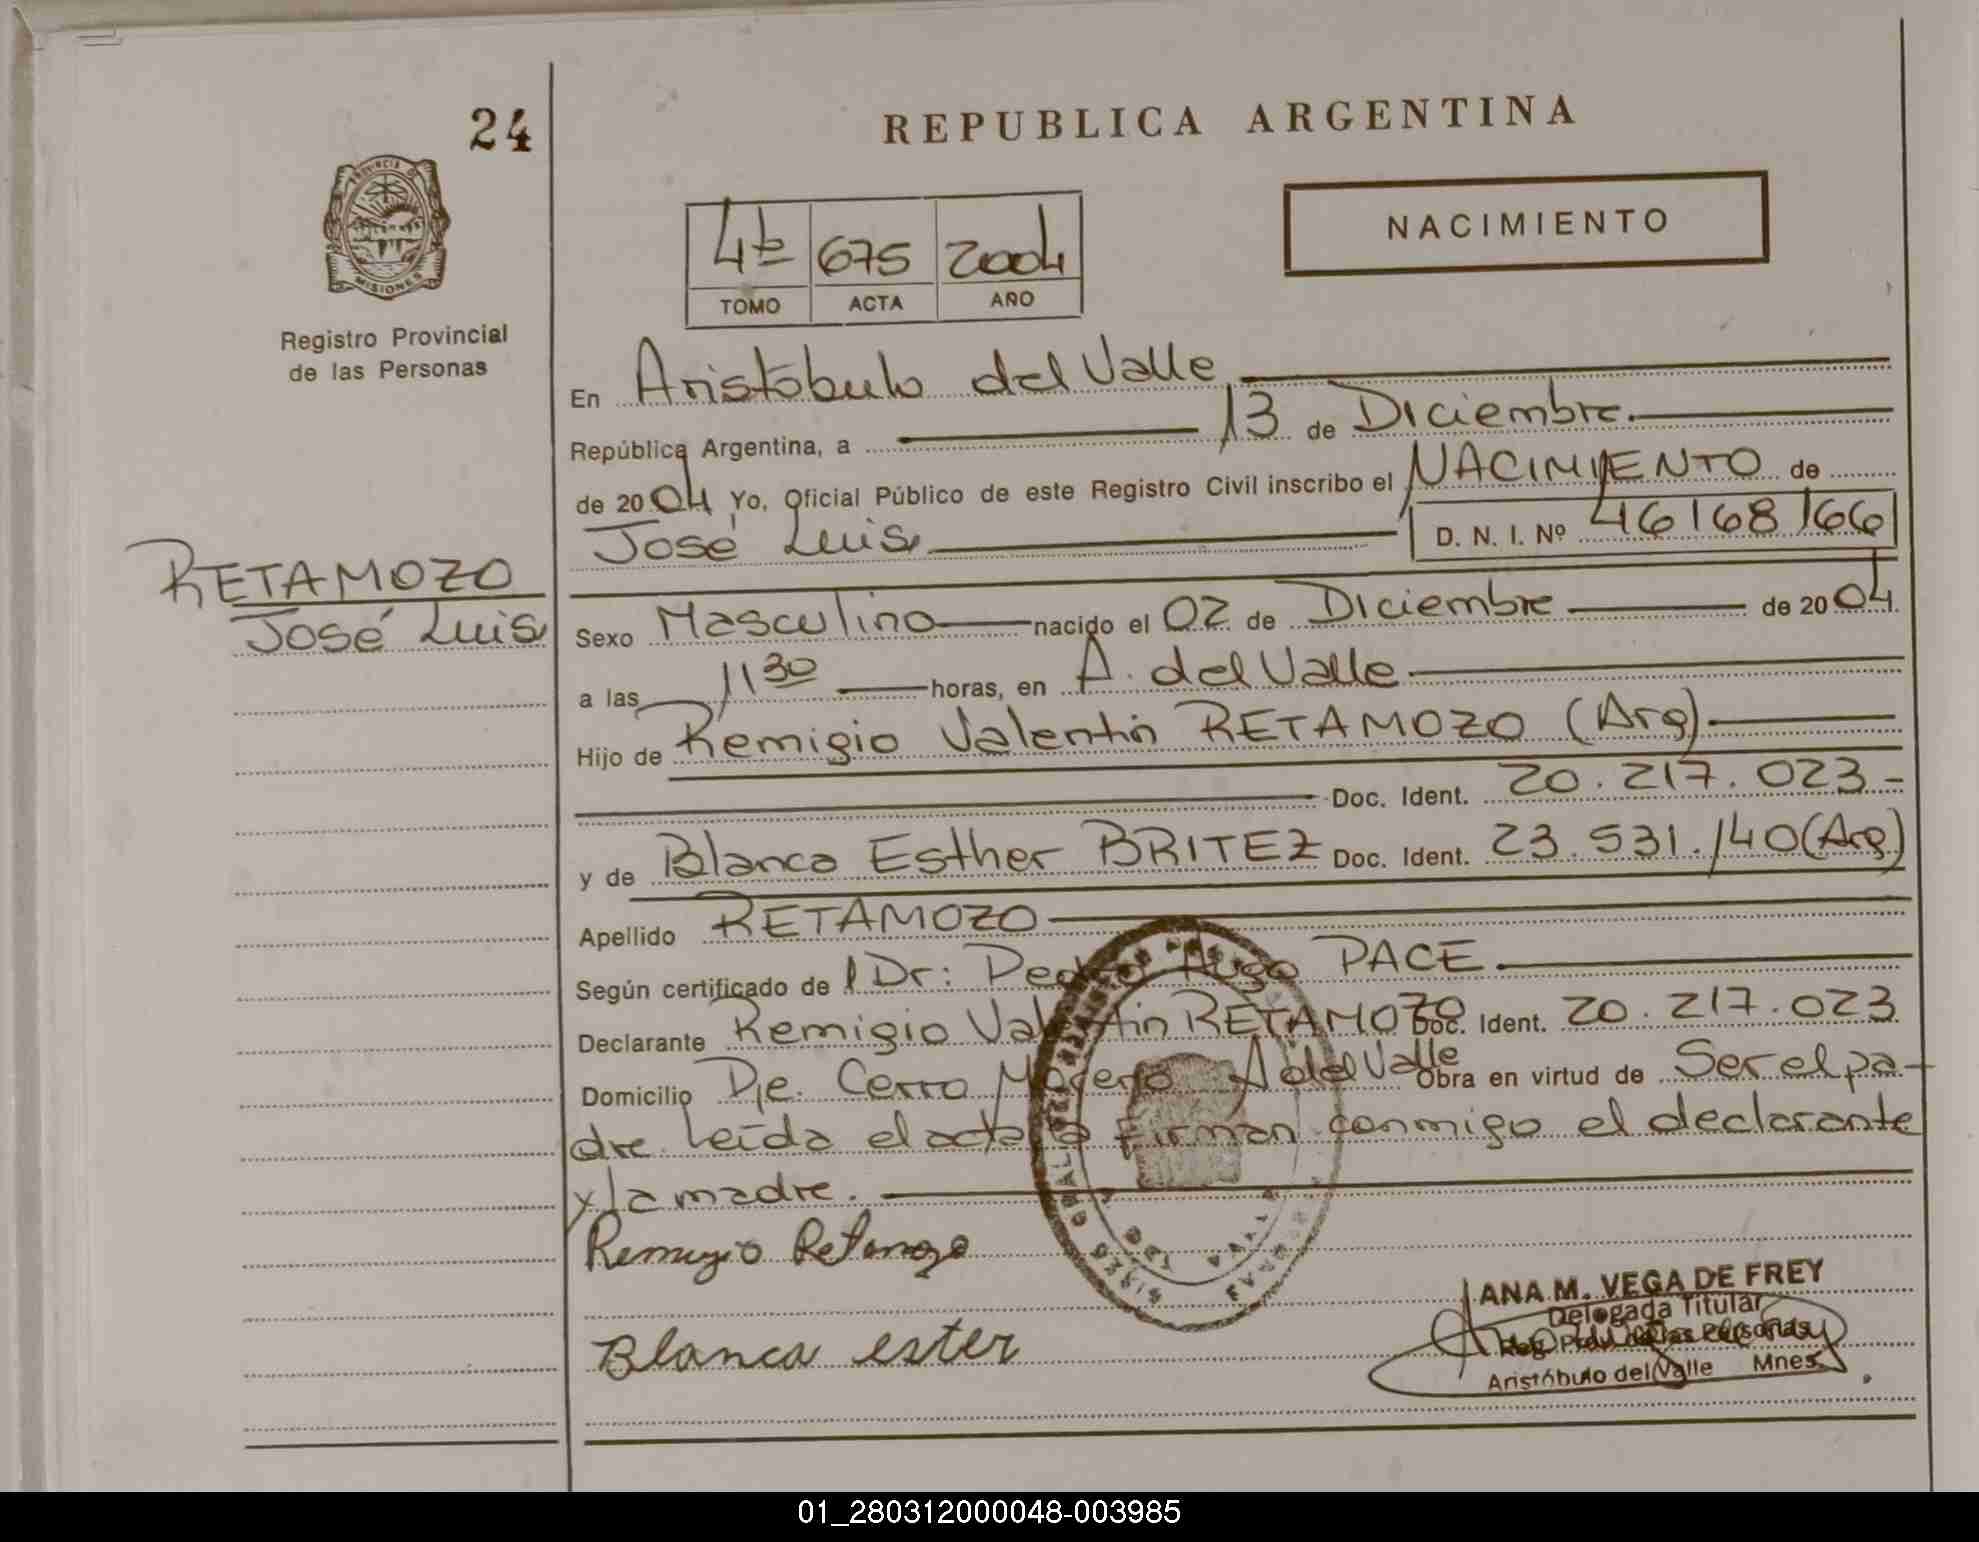 24
REPUBLICA ARGENTINA
PROVINCIA D
MISIONES
Registro Provincial
de las Personas
NACIMIENTO
4to 675 2004
TOMO ACTA AÑO
En Aristóbulo del Valle
República Argentina, a 13 de Diciembre
de 2004 Yo, Oficial Público de este Registro Civil inscribo el NACIMIENTO de
José Luis D. N. I. Nº 46168166
RETAMOZO
José Luis
Sexo Masculino nacido el 02 de Diciembre de 2004
a las 11 30 horas, en A. del Valle
Hijo de Remigio Valentin RETAMOZO (Arg)
Doc. Ident. 20.217.023-
y de Blanca Esther BRITEZ Doc. Ident. 23.531.140 (Arg)
Apellido RETAMOZO
Según certificado de l Dr: Pedro Hugo PACE
Declarante Remigio Valentin RETAMOZO Doc. Ident. 20.217.023
Domicilio Pje. Cerro Moreno A del Valle Obra en virtud de Ser el pa-
dre. Leída el acta la firman conmigo el declarante
y la madre.
Remigio Retamozo
Blanca ester
ANA M. VEGA DE FREY
Delegada Titular
Reg. Prov. de las Personas
Aristóbulo del Valle Mnes.
01_280312000048-003985